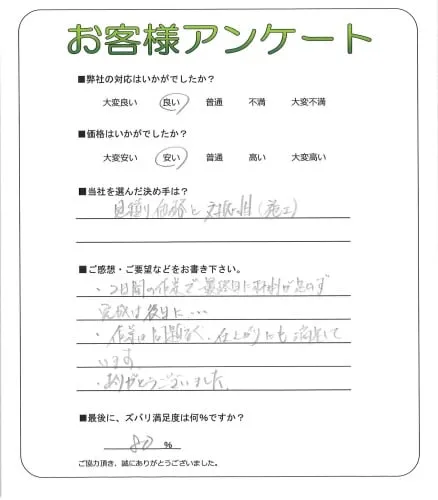 お客様アンケート
■弊社の対応はいかがでしたか？
大変良い 良い 普通 不満 大変不満
■価格はいかがでしたか？
大変安い 安い 普通 高い 大変高い
■当社を選んだ決め手は？
見積り価格と 対応(施工)
■ご感想・ご要望などをお書き下さい。
・2日間の作業で最終日に材料が足のず
完成は後日に…
・作業は問題なく、仕上がりにも満足して
います。
・ありがとうございました。
■最後に、ズバリ満足度は何%ですか？
80 %
ご協力頂き、誠にありがとうございました。